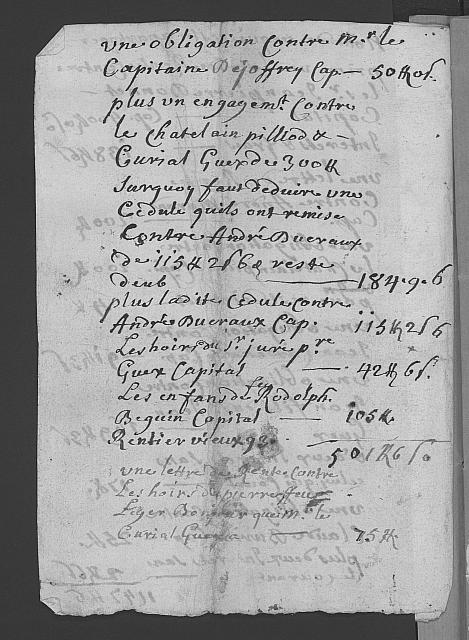 une obligation contre Mr. le
Capitaine Dejoffrey Cap. — 50 ₶ 0 s.
plus un engagemt. contre
le chatelain pilliod & —
Curial Guex de 300 ₶
surquoy faut deduire une
Cedule quils ont remise
Contre André Dueraux
de 115 ₶ 2 s 6 & reste
deub — 184. 9. 6
plus ladite Cedule contre
André Dueraux Cap. 115 ₶ 2 s 6
Les hoirs du Sr. juré pre
Guex Capital — 42 ₶ 6 s.
Les enfans de feu Rodolph.
Beguin Capital — 105 ₶
Rentier vieux 92.
501 ₶ 6 s.
une lettre de Rente contre
Les hoirs du pierre feu
le
Curial Guex — 75 ₶